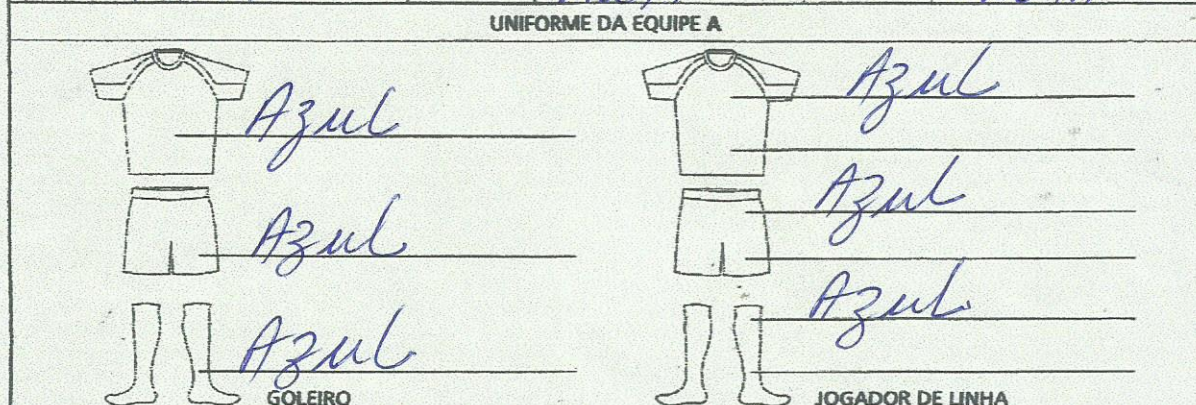 UNIFORME DA EQUIPE A
Azul
Azul
Azul
GOLEIRO
Azul
Azul
Azul
JOGADOR DE LINHA